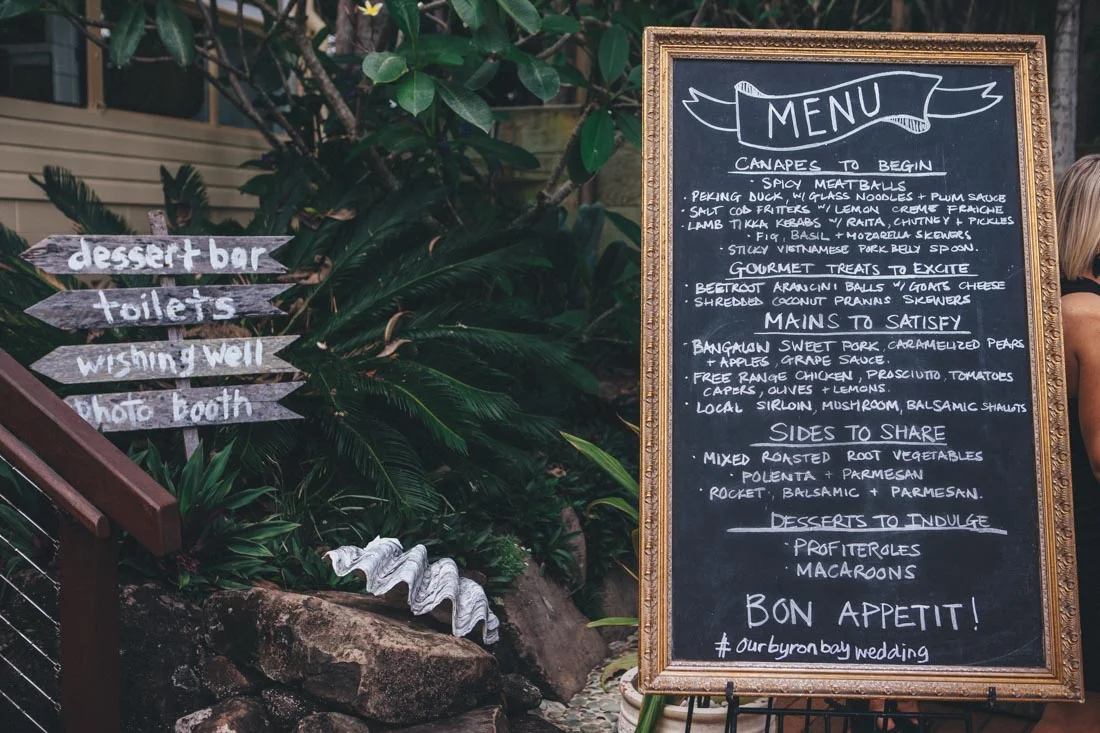 dessert bar
toilets
wishing well
photo booth
MENU
CANAPES TO BEGIN
· SPICY MEATBALLS
· PEKING DUCK, W/ GLASS NOODLES + PLUM SAUCE
· SALT COD FRITTERS W/ LEMON CREME FRAICHE
· LAMB TIKKA KEBABS W/ RAITA, CHUTNEY + PICKLES
· FIG, BASIL + MOZARELLA SKEWERS
· STICKY VIETNAMESE PORK BELY SPOON.
GOURMET TREATS TO EXCITE
· BEETROOT ARANCINI BALLS W/ GOATS CHEESE
· SHREDDED COCONUT PRAWNS SKEWERS
MAINS TO SATISFY
· BANGALOW SWEET PORK, CARAMELIZED PEARS
+ APPLES, GRAPE SAUCE.
· FREE RANGE CHICKEN, PROSCIUTTO, TOMATOES
CAPERS, OLIVES + LEMONS.
· LOCAL SIRLOIN, MUSHROOM, BALSAMIC SHALLOTS
SIDES TO SHARE
· MIXED ROASTED ROOT VEGETABLES
· POLENTA + PARMESAN
· ROCKET, BALSAMIC + PARMESAN.
DESSERTS TO INDULGE
· PROFITEROLES
· MACAROONS
BON APPETIT!
#ourbyronbaywedding